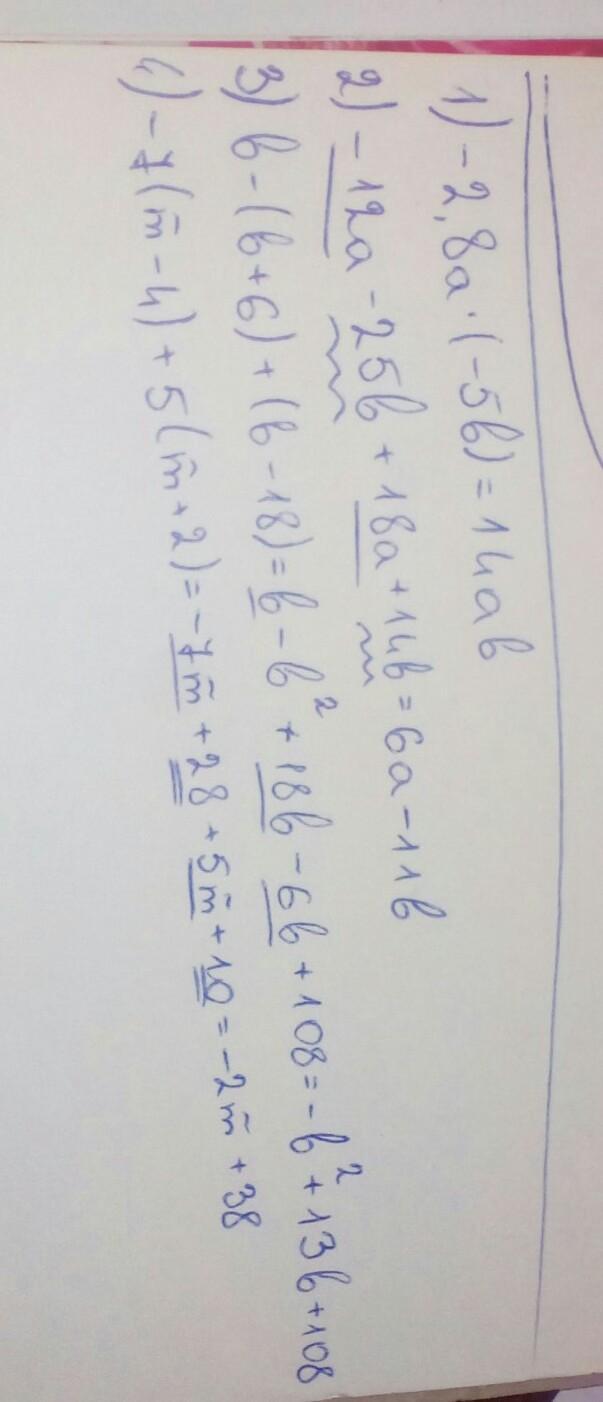 1) -2,8a·(-5b)=14ab
2) -12a-25b+18a+14b=6a-11b
3) b-(b+6)+(b-18)=b-b²+18b-6b+108=-b²+13b+108
4) -7(m-4)+5(m+2)=-7m+28+5m+10=-2m+38